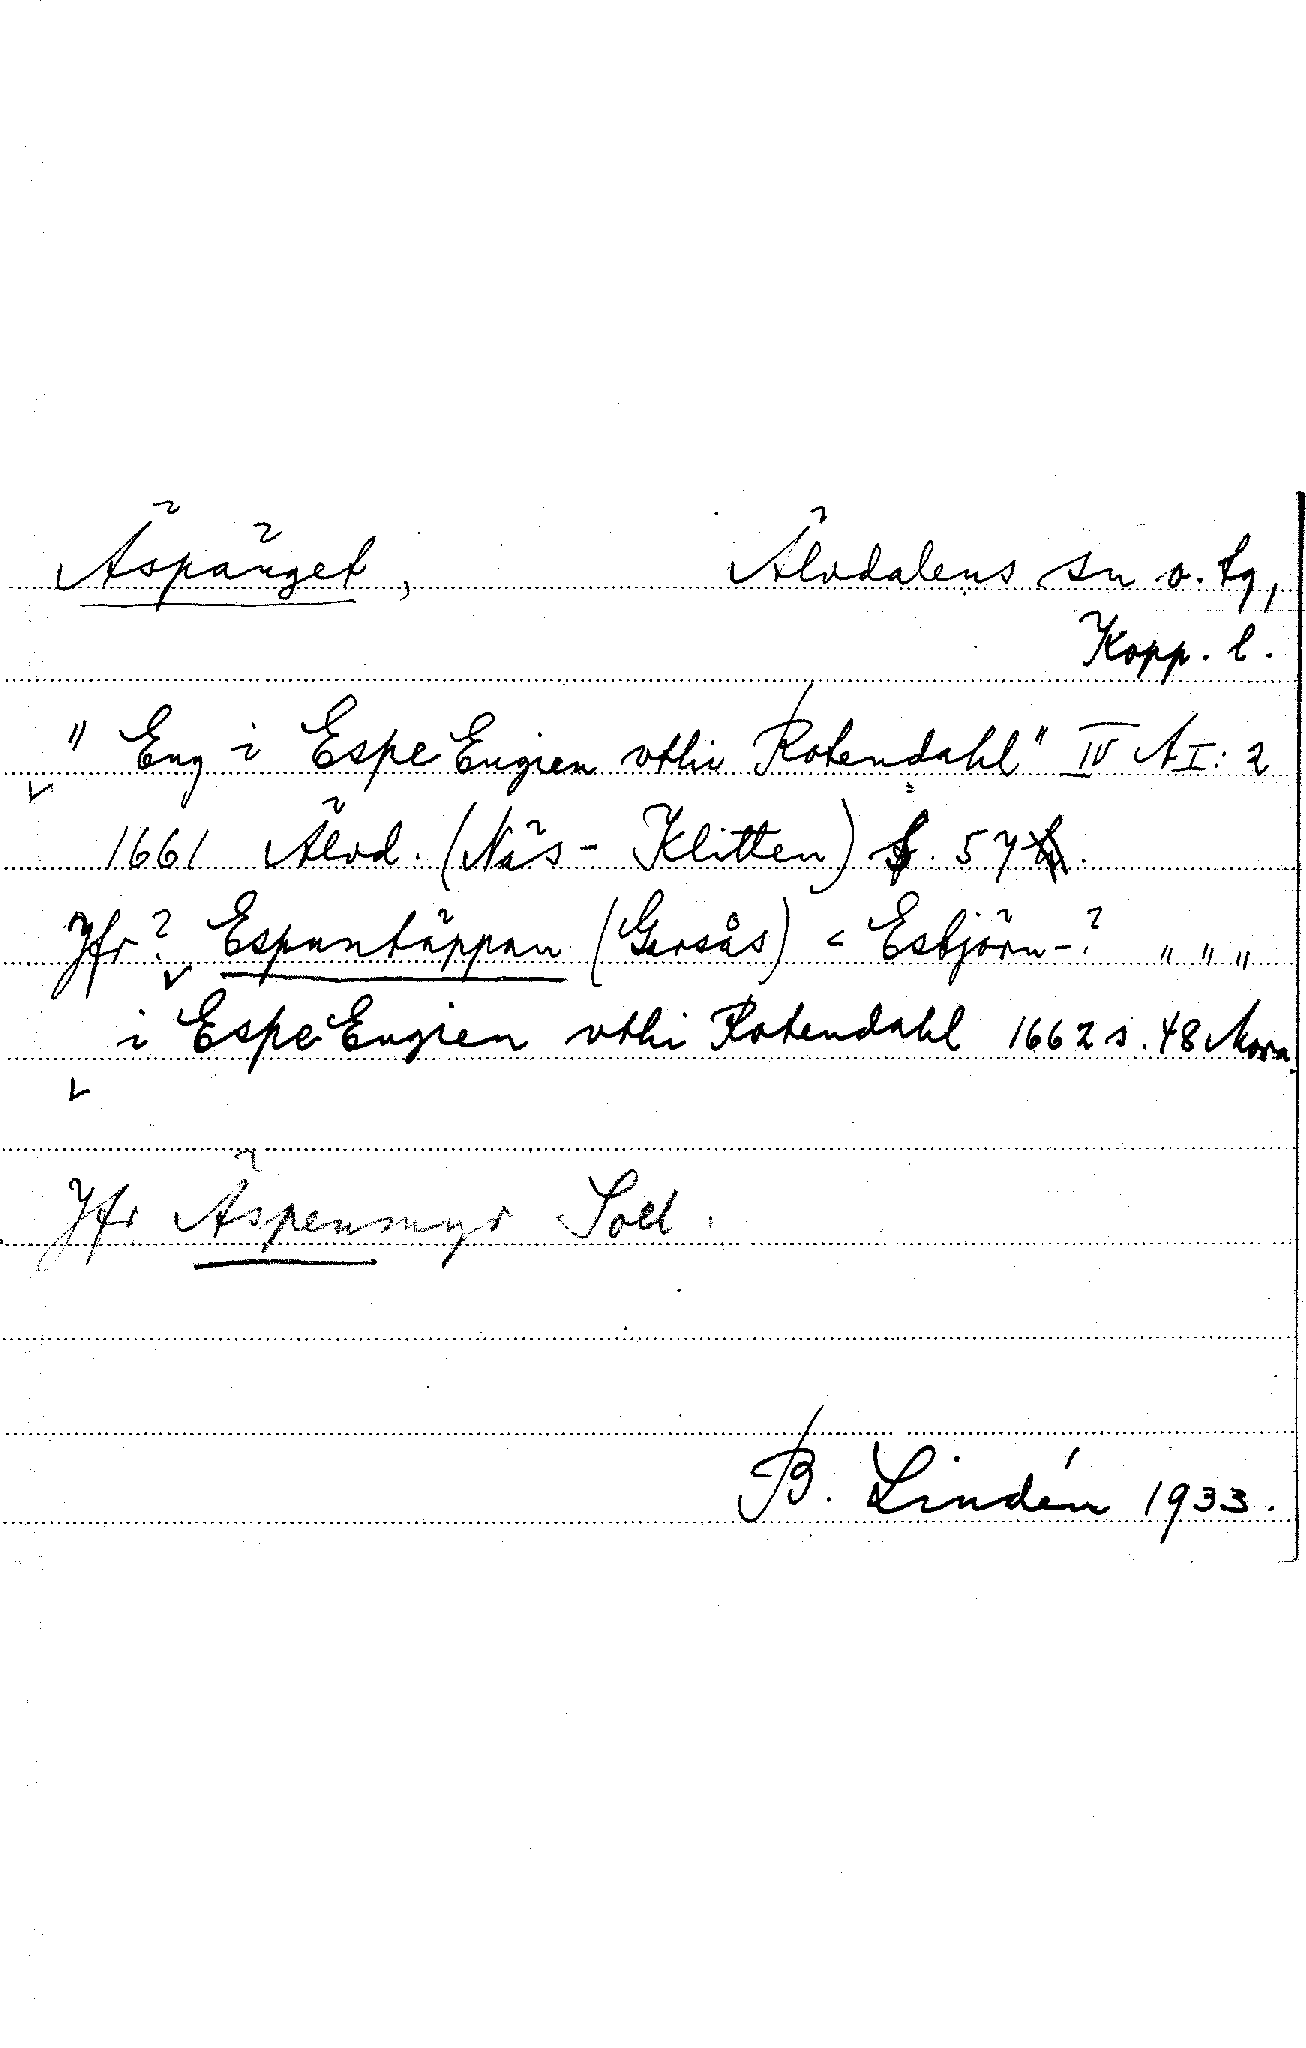 Äspänget, Älvdalens sn o. tg,
Kopp. l.
"Eng i Espe Engien vthi Rotendahl" IV A I: 2
1661 Älvd. (Näs - Klitten) s. 57.
Jfr? Espantäppan (Gersås) < Esbjörn-? " " "
i Espe Engien vthi Rotendahl 1662 s. 48 Mora.
Jfr Äspenmyr Soll.
B. Lindén 1933.